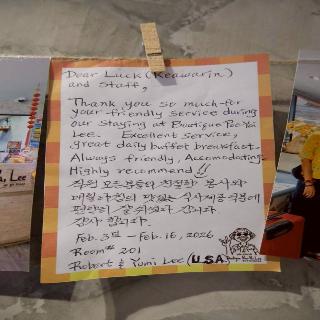 Dear Luck (Keawarin)
and Staff,
Thank you so much for
your friendly service during
our staying at Boutique Poo Yai
Lee. Excellent service,
great daily buffet breakfast.
Always friendly, Accomodating.
Highly recommend!!
직원 모든분들의 친절한 봉사와
매일 아침의 맛있는 식사제공 덕분에
편안히 잘 쉬었다 갑니다
감사 합니다.
Feb. 3rd - Feb. 16, 2026
Room# 201
Robert & Yumi Lee (U.S.A.)
Lee